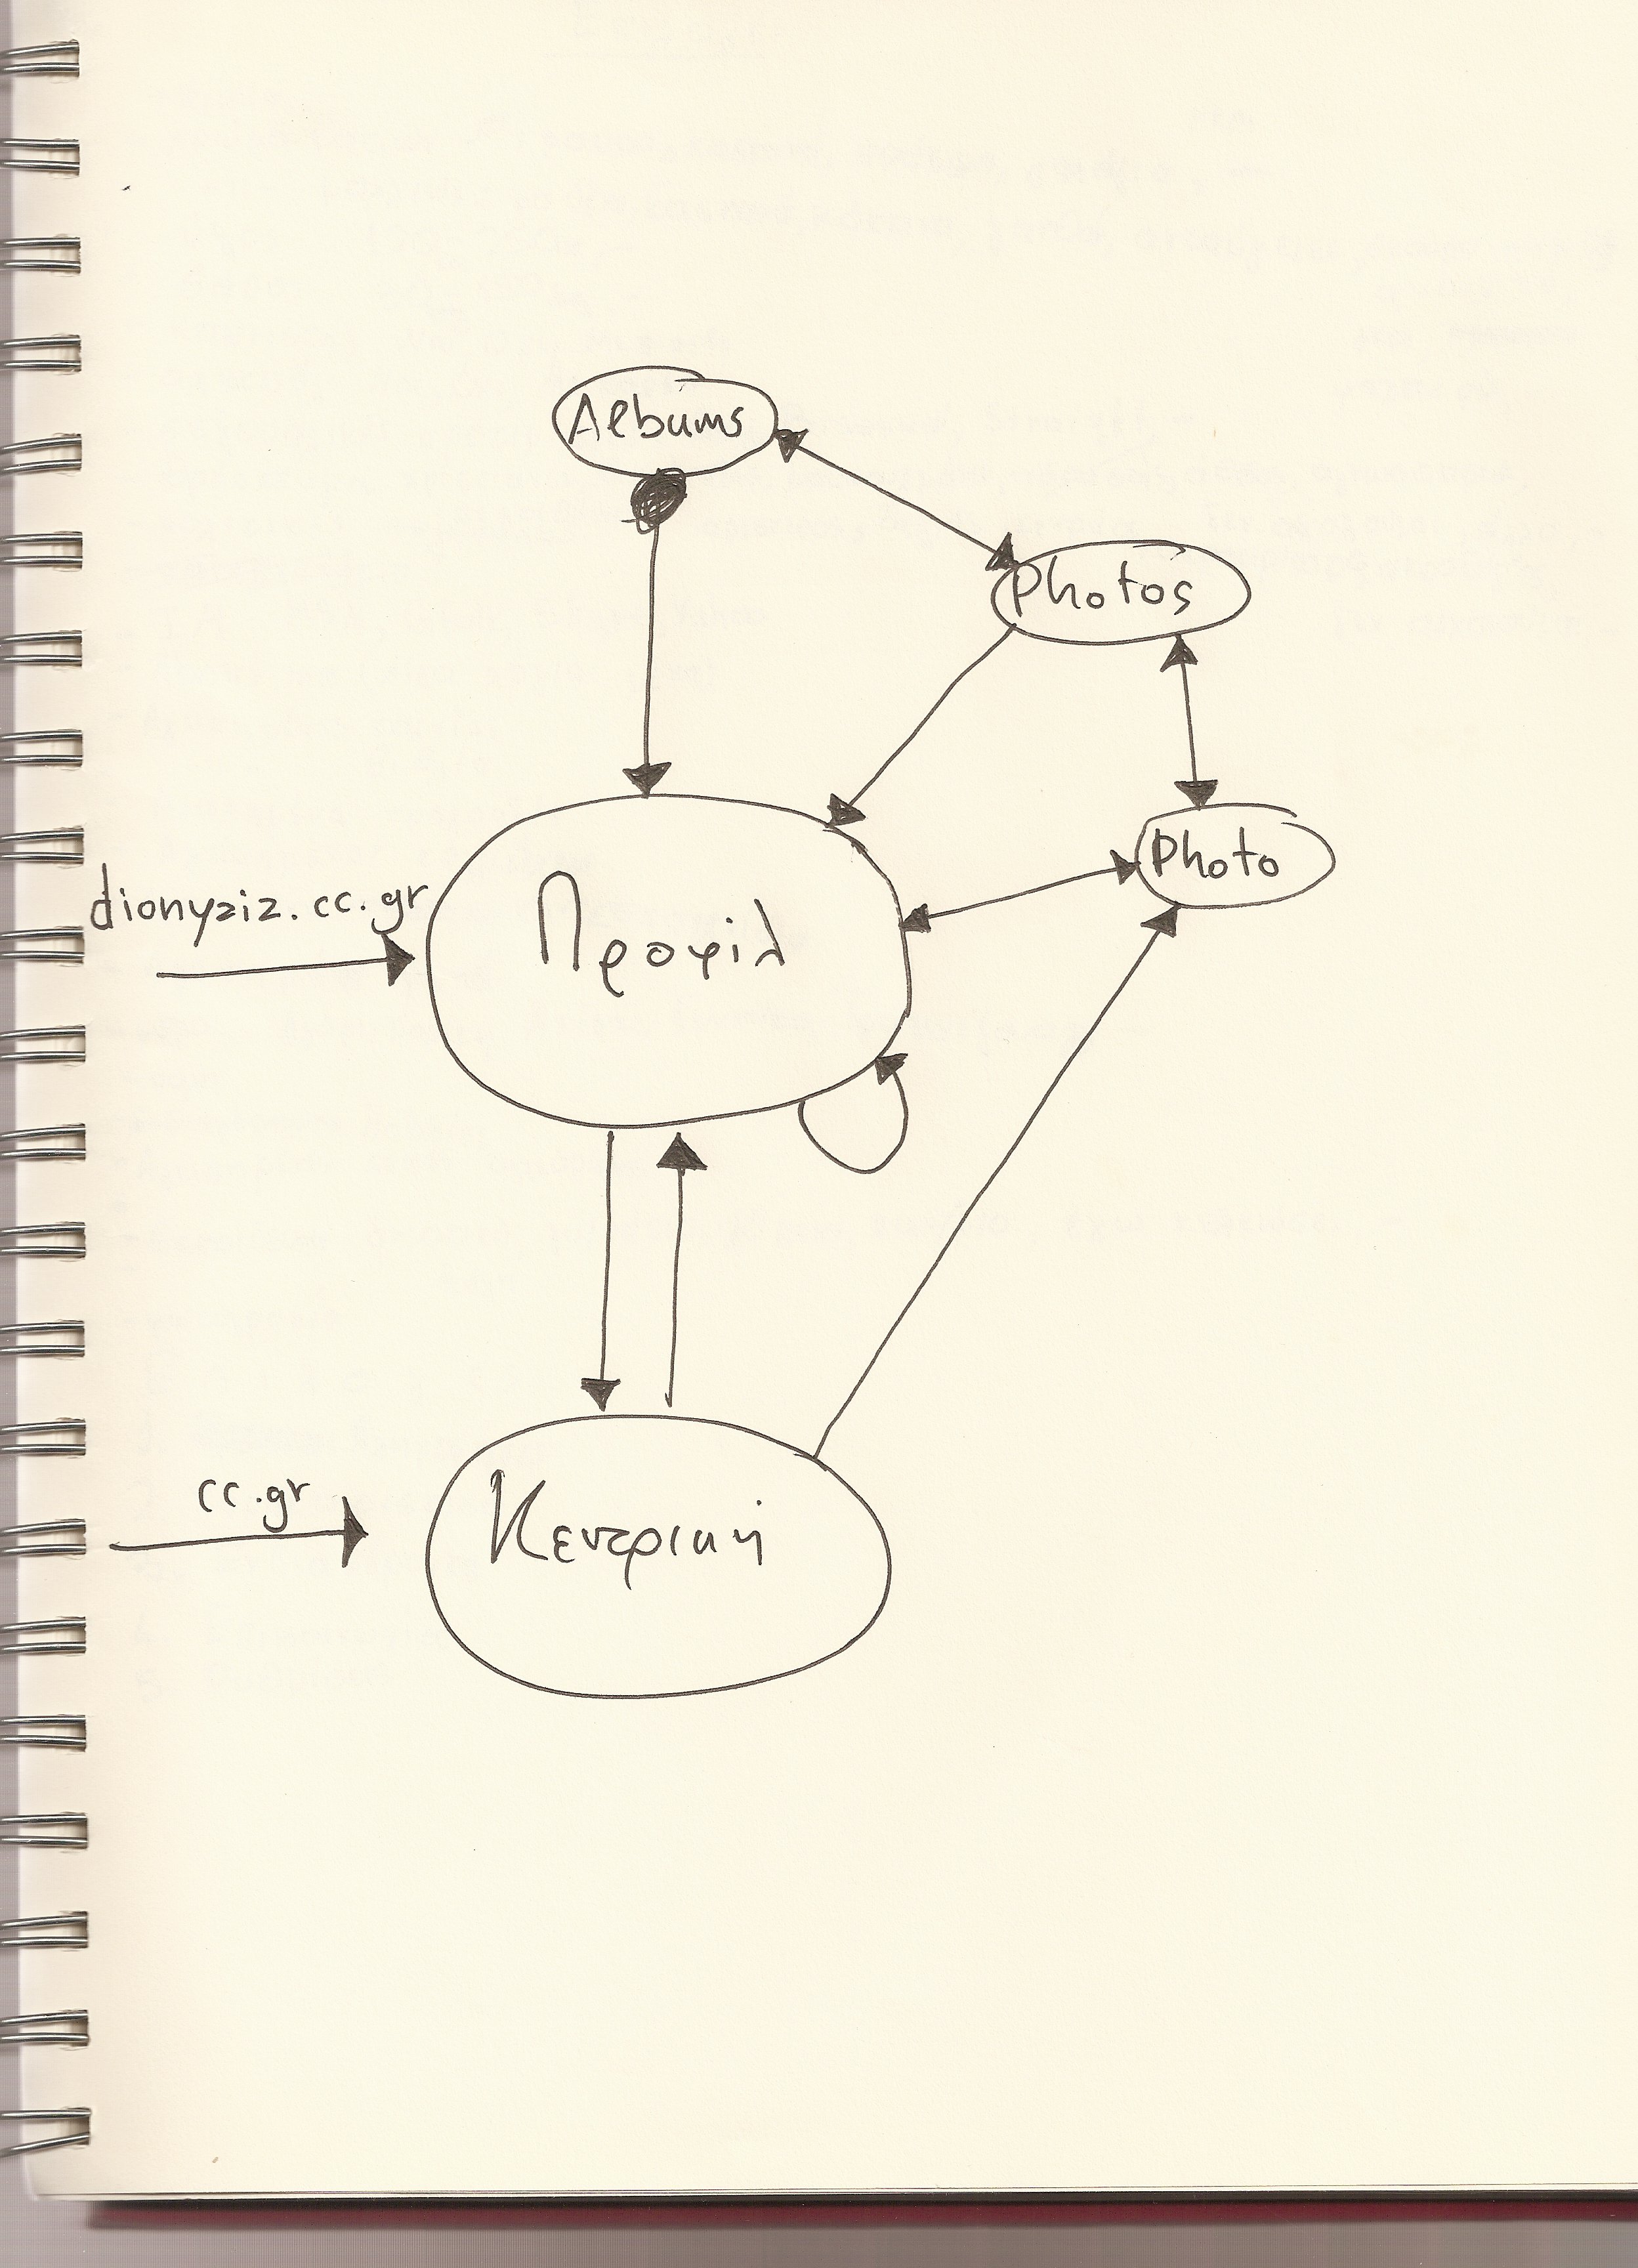 Albums
Photos
Photo
dionyziz.cc.gr
Προφίλ
cc.gr
Κεντρική